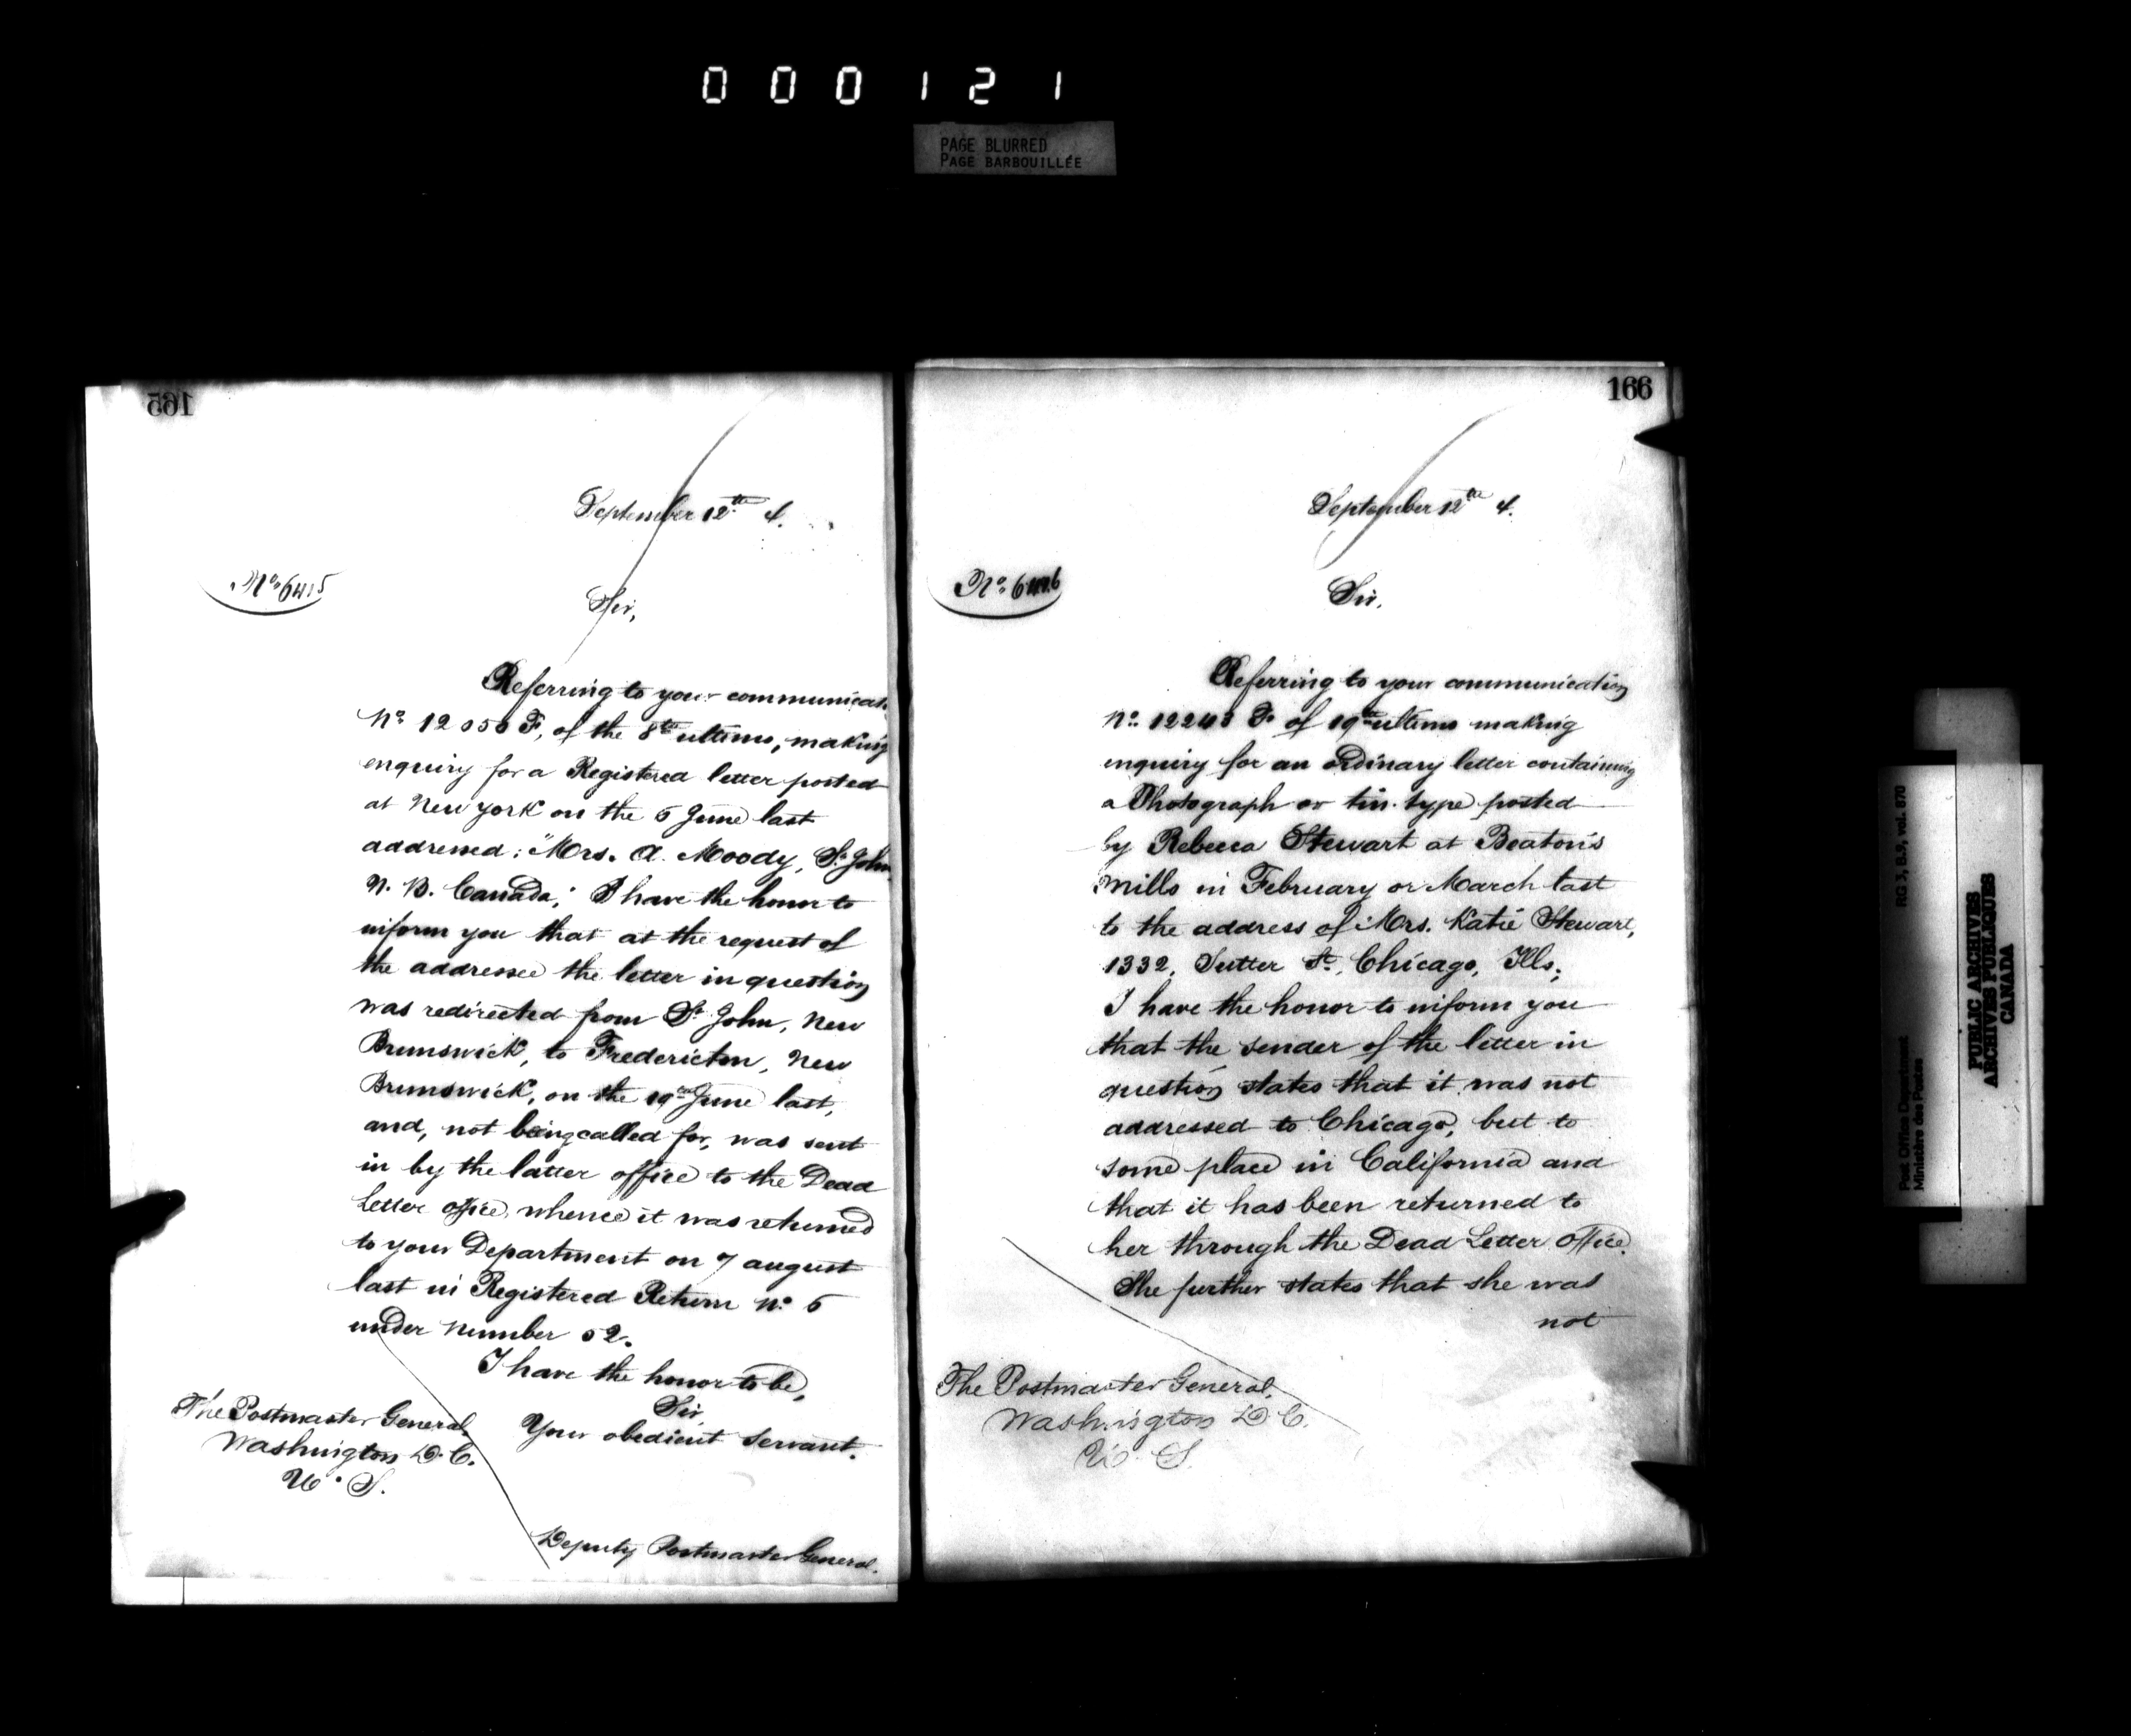 000121
PAGE BLURRED
PAGE BARBOUILLÉE
165
September 12th 4.
No. 6415
Sir,
Referring to your communicat
No. 12050 F, of the 8th ultimo, making
enquiry for a Registered letter posted
at New York on the 5 June last
addressed: "Mrs. A. Moody, St. John
N. B. Canada," I have the honor to
inform you that at the request of
the addressee the letter in question
was redirected from St. John, New
Brunswick, to Fredericton, New
Brunswick, on the 19th June last,
and, not being called for, was sent
in by the latter office to the Dead
Letter Office, whence it was returned
to your Department on 7 August
last in Registered Return No. 5
under number 52.
I have the honor to be,
Sir,
Your obedient servant.
The Postmaster General,
Washington D. C.
U. S.
Deputy Postmaster General.
166
September 12th 4.
No.
Sir.
Referring to your communication
No. 12243 F. of 19th ultimo making
enquiry for an ordinary letter containing
a Photograph or tin-type posted
by Rebecca Stewart at Beaton's
Mills in February or March last
to the address of Mrs. Katie Stewart,
1332, Sutter St., Chicago, Ills;
I have the honor to inform you
that the sender of the letter in
question states that it was not
addressed to Chicago, but to
some place in California and
that it has been returned to
her through the Dead Letter Office.
She further states that she was
not
The Postmaster General,
Washington D. C.
U. S.
RG 3, B.9, vol. 870
Post Office Department
Ministère des Postes
PUBLIC ARCHIVES
ARCHIVES PUBLIQUES
CANADA